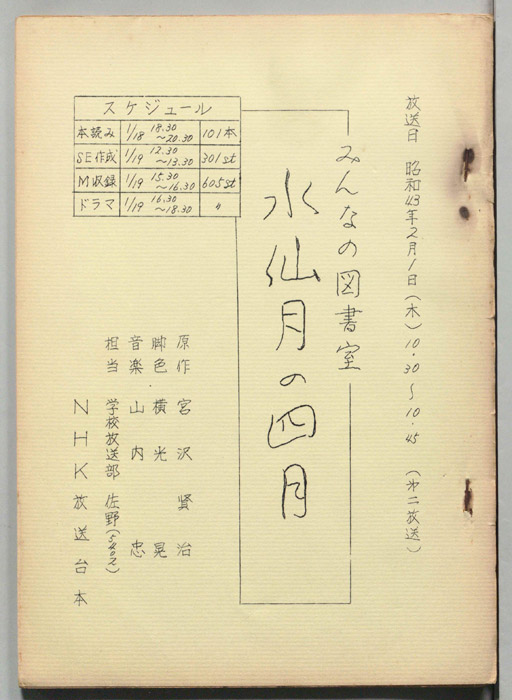 放送日 昭和43年2月1日(木)10.30～10.45 (第二放送)
みんなの図書室
水仙月の四月
スケジュール
本読み 1/18 18.30～20.30 101本
SE作成 1/19 12.30～13.30 301st
M収録 1/19 15.30～16.30 605st
ドラマ 1/19 16.30～18.30 〃
原作 宮沢賢治
脚色・横光晃
音楽 山内忠
担当 学校放送部 佐野(5402)
NHK放送台本